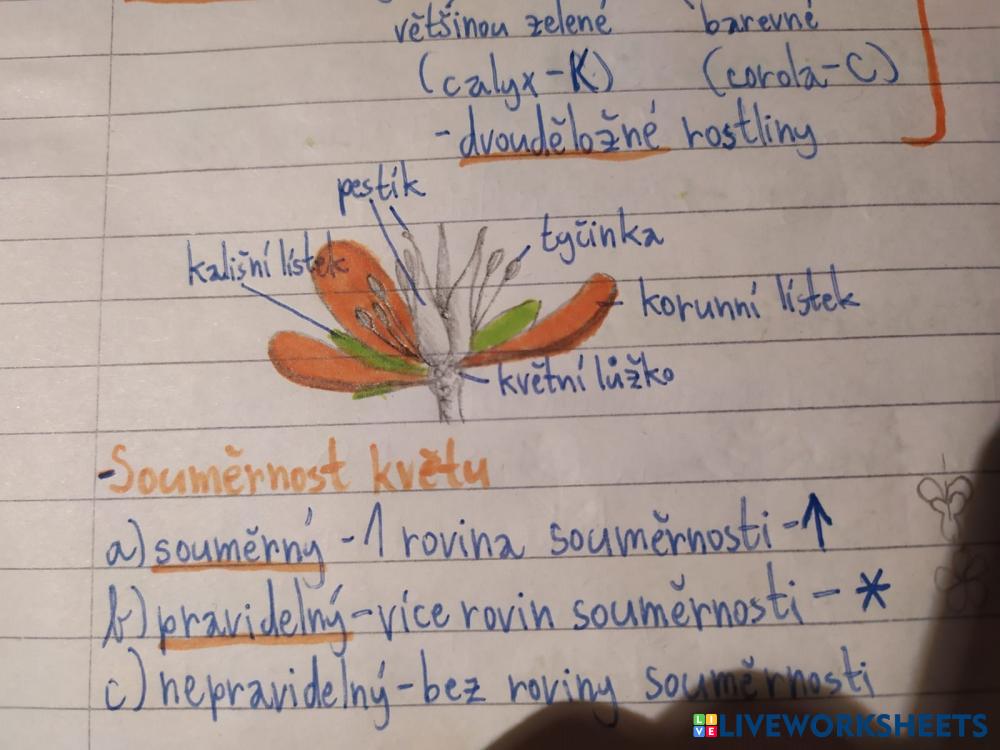 většinou zelené barevné
(calyx-K) (corola-C)
-dvouděložné rostliny
pestík
tyčinka
kališní lístek
korunní lístek
květní lůžko
-Souměrnost květu
a) souměrný -1 rovina souměrnosti -↑
b) pravidelný-více rovin souměrnosti - *
c) nepravidelný-bez roviny souměrnosti
LIVEWORKSHEETS